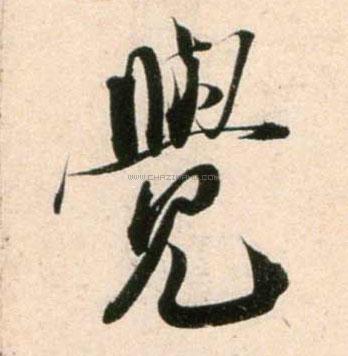 覺
WWW.CHAZIWANG.COM